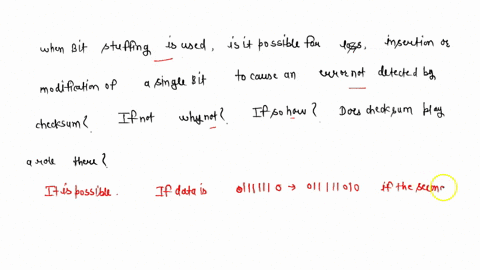 when Bit stuffing is used, is it possible for loss, insertion or
modification of a single Bit to cause an error not detected by
checksum? If not why not? If so how? Does checksum play
a role there?
It is possible. If data is 01111110 → 011111010 if the secon